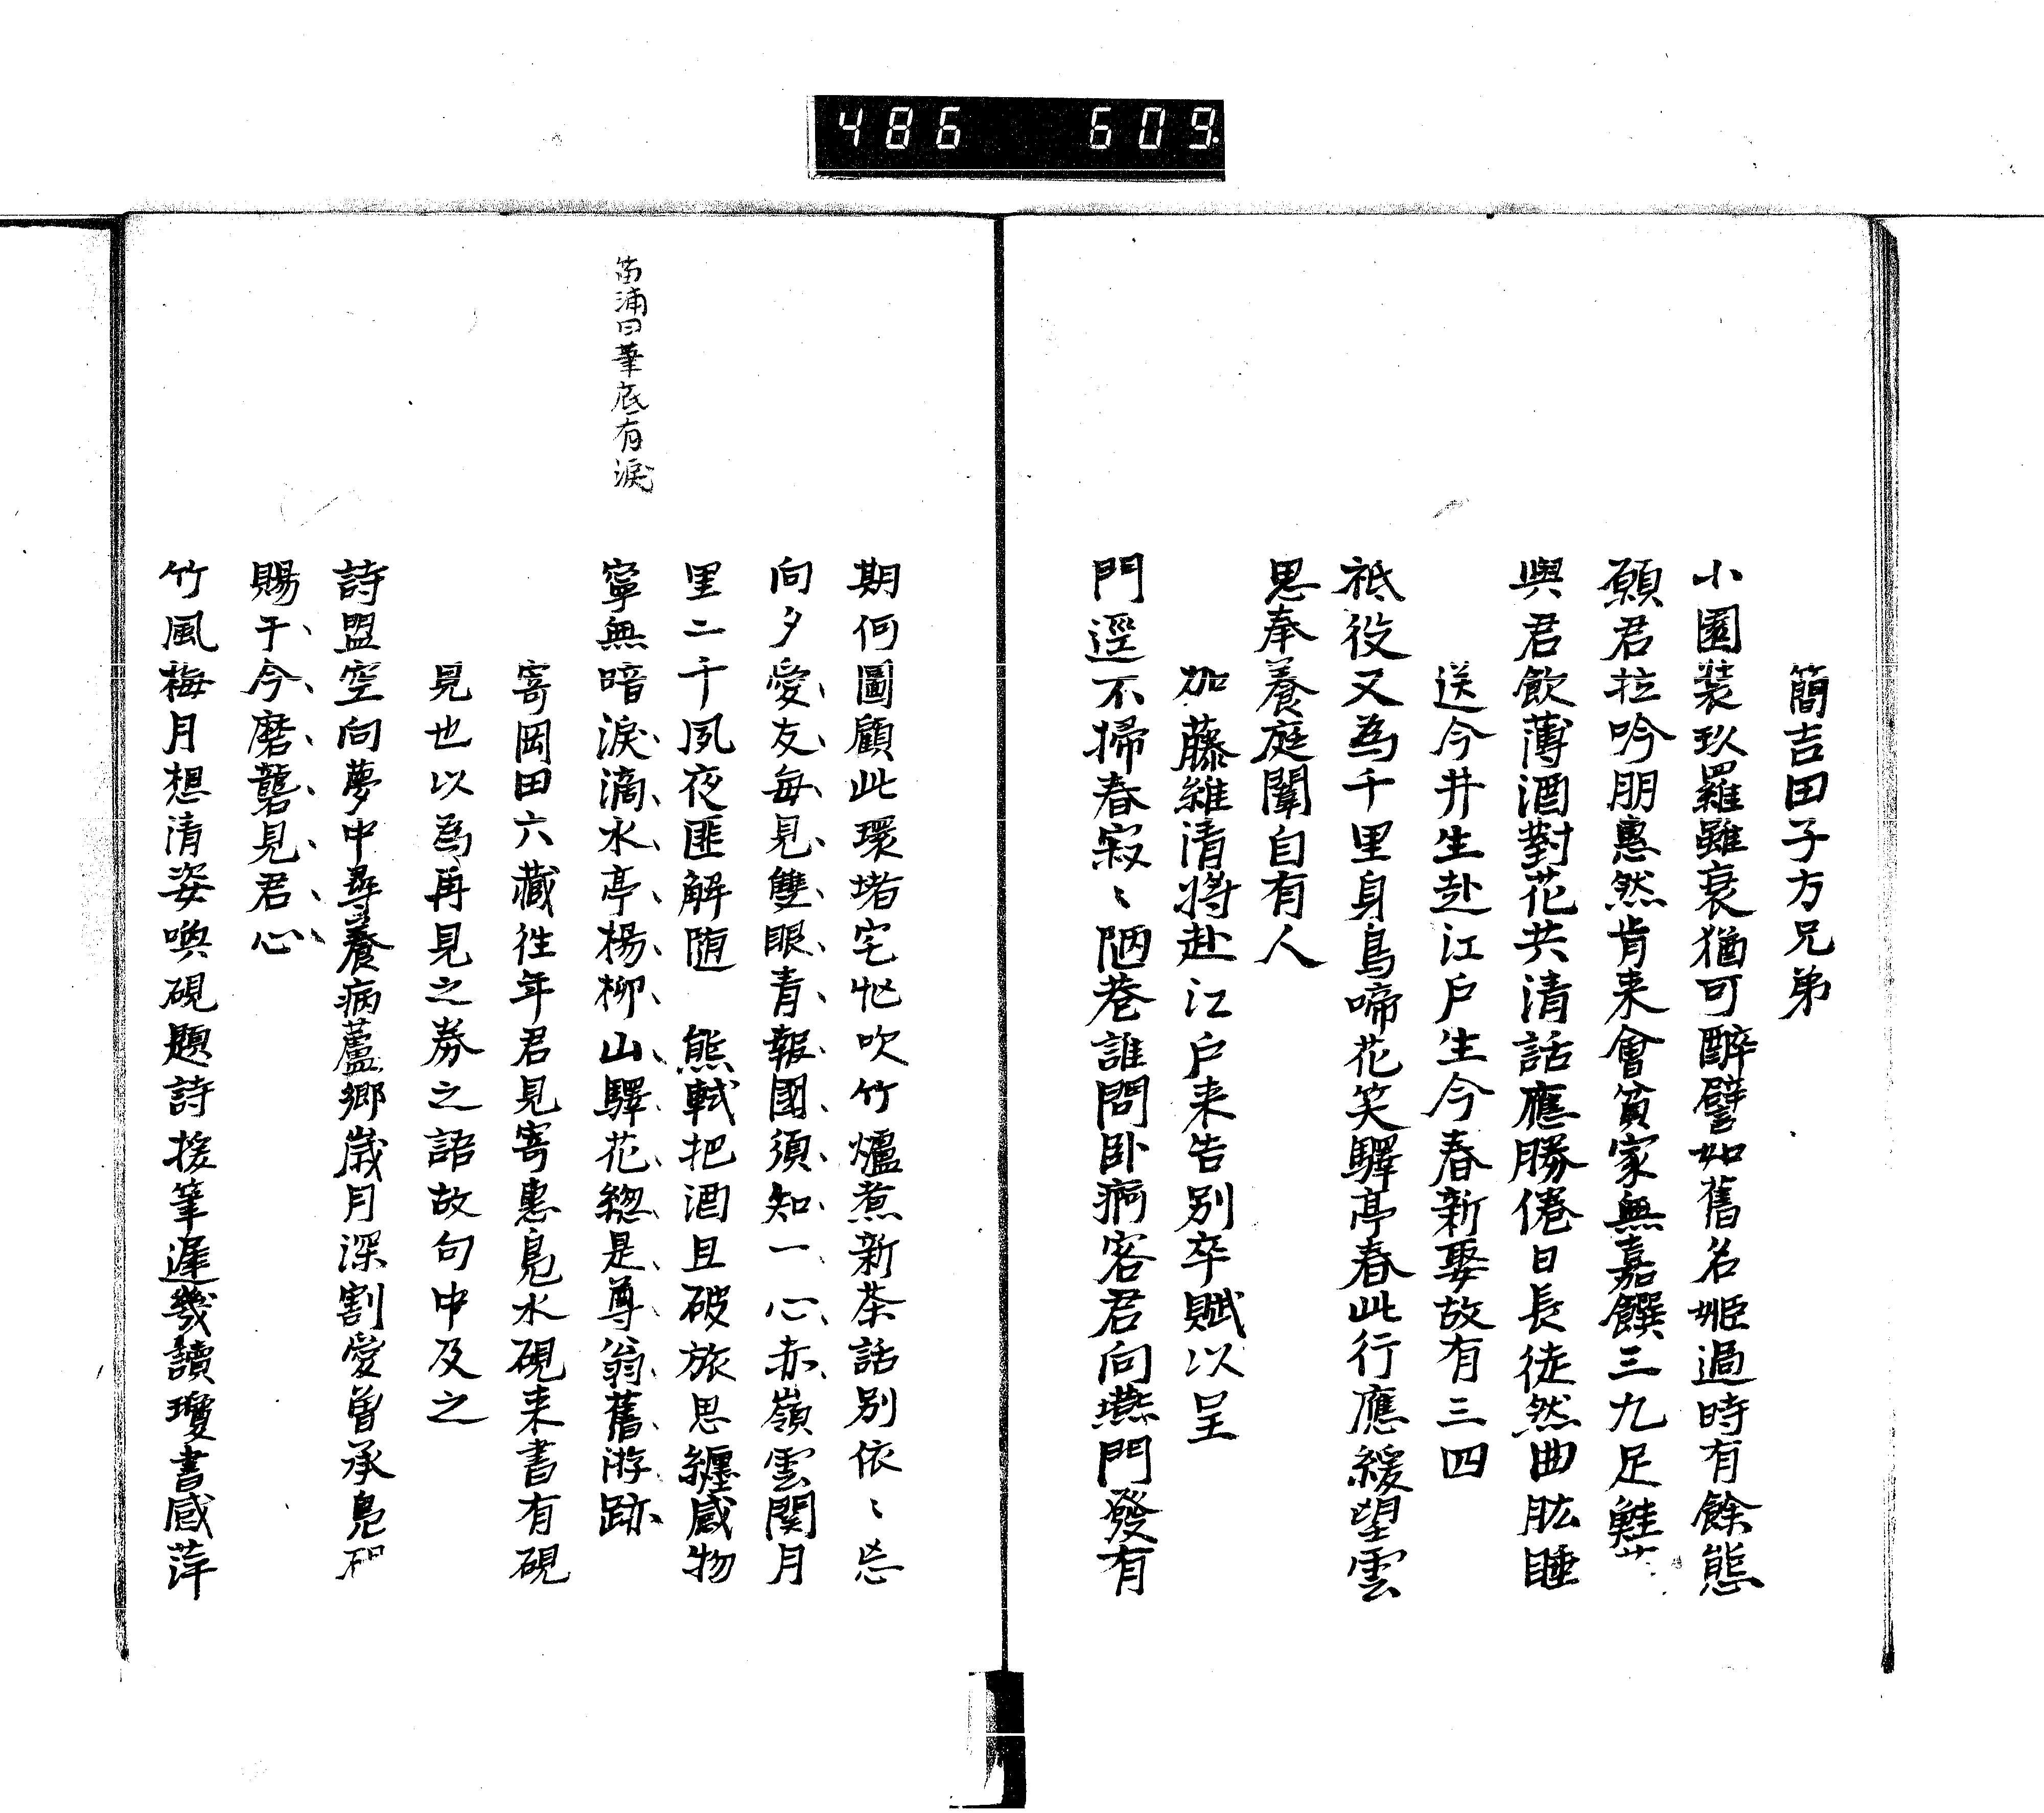 486 609
簡吉田子方兄弟
小園裝玖羅雖衰猶可醉譬如舊名姬過時有餘態
願君拉吟朋惠然肯来會貧家無嘉饌三九足鮭
與君飲薄酒對花共清話應勝倦日長徒然曲肱睡
送今井生赴江戶生今春新娶故有三四
祗役又為千里身鳥啼花笑驛亭春此行應緩望雲
思奉養庭闈自有人
加藤維清將赴江戶来告別卒賦以呈
門逕不掃春寂〻陋巷誰問卧病客君向燕門發有
期何圖顧此環堵宅忙吹竹爐煮新茶話別依〻忘
向夕愛友每見雙眼青報國須知一心赤嶺雲関月
里二千夙夜匪解随 熊軾把酒且破旅思纏感物
寧無暗淚滴水亭楊柳山驛花總是尊翁舊游跡
苗浦曰筆底有淚
寄岡田六藏往年君見寄惠鳧水硯来書有硯
見也以為再見之券之語故句中及之
詩盟空向夢中尋養病蘆鄉歲月深割愛曽承鳧硯
賜于今磨礱見君心
竹風梅月想清姿喚硯題詩援筆遲幾讀瓊書感萍